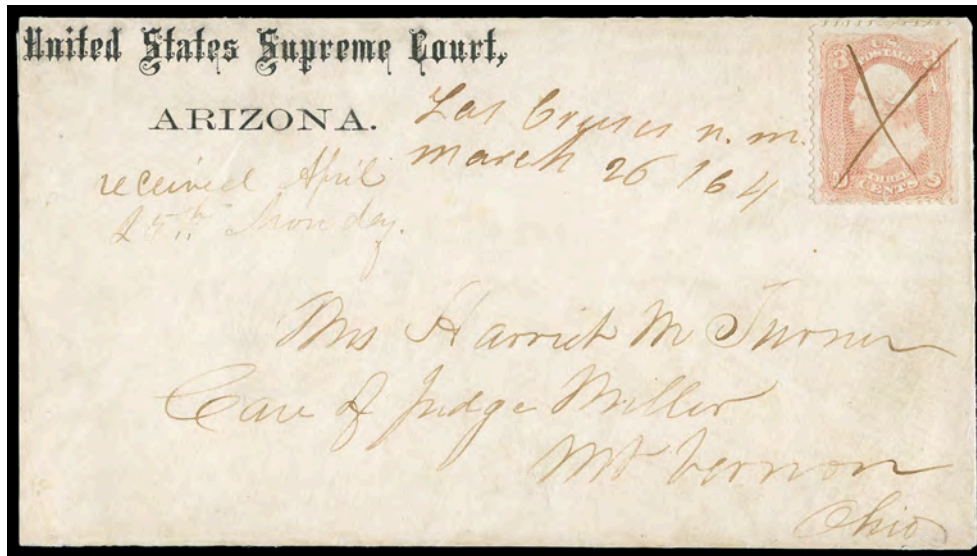 United States Supreme Court,
ARIZONA.
Las Cruces n. m.
march 26 / 64
received April
25th Monday.
3 U.S. 3
POSTAGE
THREE
CENTS
Mrs Harriet M Turner
Care of Judge Miller
Mt Vernon
Ohio